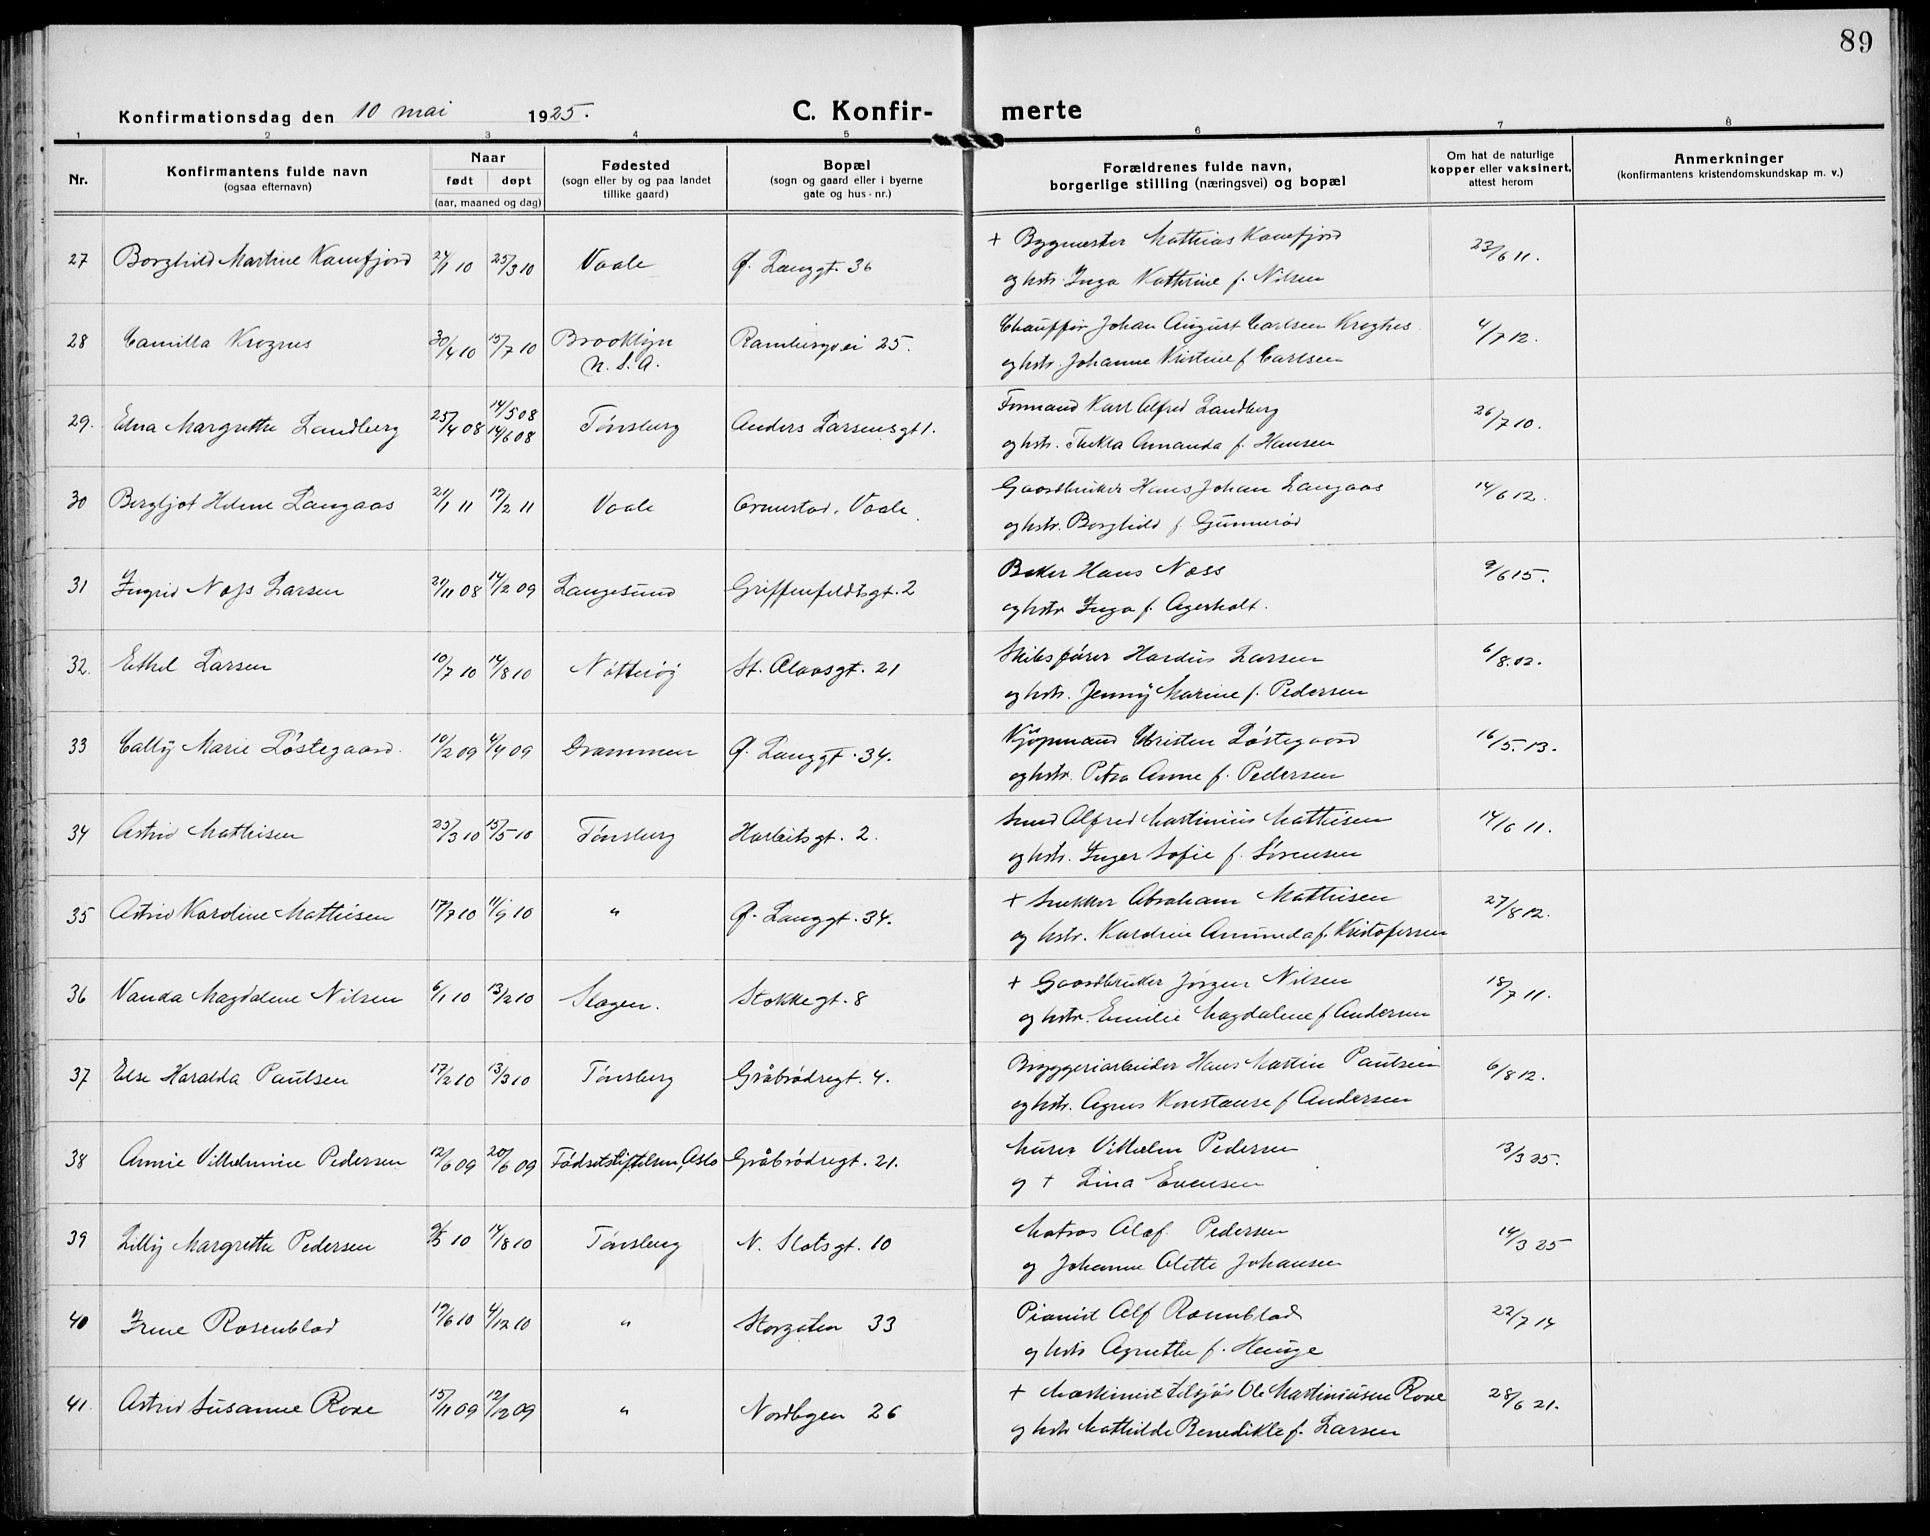 89
Konfirmationsdag den 10 mai 1925.
C. Konfir- merte
1 2 3 4 5 6 7 8
Nr.
Konfirmantens fulde navn
(ogsaa efternavn)
Naar
født døpt
(aar, maaned og dag)
Fødested
(sogn eller by og paa landet
tillike gaard)
Bopæl
(sogn og gaard eller i byerne
gate og hus-nr.)
Forældrenes fulde navn,
borgerlige stilling (næringsvei) og bopæl
Om hat de naturlige
kopper eller vaksinert,
attest herom
Anmerkninger
(konfirmantens kristendomskundskap m. v.)
27 Borghild Martine Kamfjord 24/1 10 25/3 10 Vaale Ø. Langgt. 36 + Bygmester Mathias Kamfjord 23/6 11.
og hstr. Inga Kathrine f. Nilsen
28 Camilla Krognes 30/4 10 15/7 10 Brooklyn Rambergvei 25. Chauffør Johan August Carlsen Krognes 4/7 12.
N. S. A. og hstr. Johanne Kristine f Carlsen
29. Edna Margrethe Landberg 25/4 08 14/5 08 Tønsberg Anders Larsensgt 1. Formand Karl Alfred Landberg 26/7 10.
14/6 08 og hstr. Thekla Amanda f. Hansen
30 Bergljot Helene Langaas 21/1 11 19/2 11 Vaale Ormestad, Vaale. Gaardbruker Hans Johan Langaas 14/6 12.
og hstr. Borghild f Gunnerød
31 Ingrid Næss Larsen 21/11 08 14/2 09 Langesund Griffenfeldtsgt. 2 Baker Hans Næss 9/6 15.
og hstr Inga f. Agerholt.
32. Ethel Larsen 10/7 10 14/8 10 Nøtterøy St. Olavsgt. 21 Skibsfører Hardus Larsen 6/8. 02.
og hstr. Jenny Marine f. Pedersen
33 Cally Marie Løstegaard. 10/2 09 4/4 09 Drammen Ø. Langgt. 34. Kjøpmand Kristen Løstegaard 16/5. 13.
og hstr. Petra Anne f. Pedersen
34 Astrid Mathisen 23/3 10 15/5 10 Tønsberg Harbitsgt. 2. Smed Alfred Martinius Mathisen 14/6 11.
og hstr. Inger Sofie f. Sørensen
35 Astrid Karoline Mathisen 17/7 10 11/9 10 " Ø. Langgt. 34. + Snekker Abraham Mathisen 27/8 12.
og hstr. Karoline Amunda f. Kristofersen
36 Vanda Magdalene Nilsen 6/1 10 13/2 10 Slagen. Stokkegt. 8 + Gaardbruker Jørgen Nilsen 18/7 11.
og hstr. Emilie Magdalene f Andersen
37 Else Haralda Paulsen 17/2 10 13/3 10 Tønsberg Gråbrødregt. 4. Bryggeriarbeider Hans Martin Paulsen 6/8 12.
og hstr. Agnes Konstanse f Andersen
38 Annie Vilhelmine Pedersen 12/6 09 20/6 09 Fødselsstiftelsen, Oslo Gråbrødregt. 21. Murer Vilhelm Pedersen 13/3 25.
og + Lina Evensen
39 Lilly Margrethe Pedersen 9/5 10 14/8 10 Tønsberg N. Slotsgt. 10 Matros Olaf Pedersen 14/3 25
og Johanne Olette Johansen
40 Irene Rosenblad 19/6 10 4/12 10 " Storgaten 33 Pianist Alf Rosenblad 22/7 14
og hstr Agnethe f. Hauge
41. Astrid Susanne Roxe 15/11 09 12/12 09 " Nordbyen 26 + Maskinist tilsjøs Ole Martiniusen Roxe 28/6 21.
og hstr Mathilde Benedikte f. Larsen